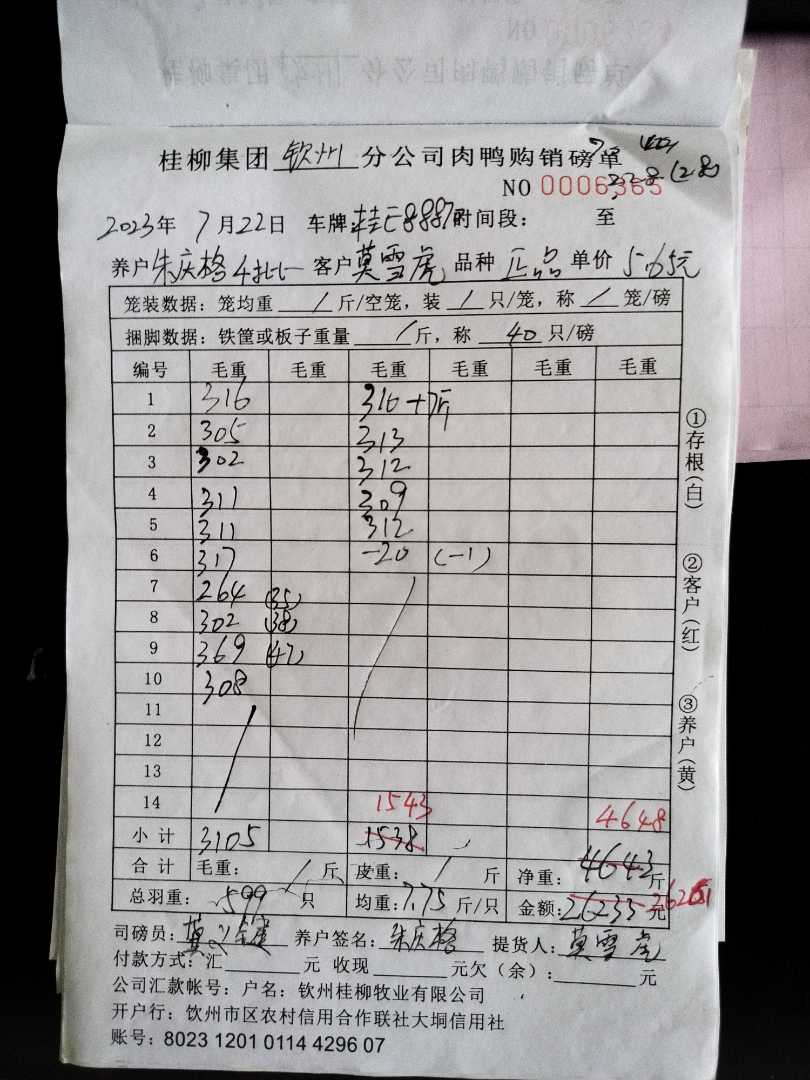 桂柳集团 钦州 分公司肉鸭购销磅单
NO 0006365
2023年 7月22日 车牌:桂E8887 时间段: 至
养户 朱庆格 4批 客户 莫雪虎 品种 正品 单价 5.65元
笼装数据:笼均重 / 斤/空笼,装 / 只/笼,称 / 笼/磅
捆脚数据:铁筐或板子重量 / 斤,称 40 只/磅
编号 毛重 毛重 毛重 毛重 毛重 毛重
1 316 316+1斤
2 305 313
3 302 312
4 311 309
5 311 312
6 317 -20 (-1)
7 264 (35)
8 302 (38)
9 369 (47)
10 308
11
12
13
14 1543 4648
小计 3105 1538
合计 毛重: / 斤 皮重: / 斤 净重: 4643 斤
总羽重: 599 只 均重: 7.75 斤/只 金额: 26233 元 26261
司磅员: 养户签名: 朱庆格 提货人: 莫雪虎
付款方式:汇 元 收现 元欠(余): 元
公司汇款帐号:户名:钦州桂柳牧业有限公司
开户行:钦州市区农村信用合作联社大垌信用社
账号:8023 1201 0114 4296 07
①存根(白)
②客户(红)
③养户(黄)